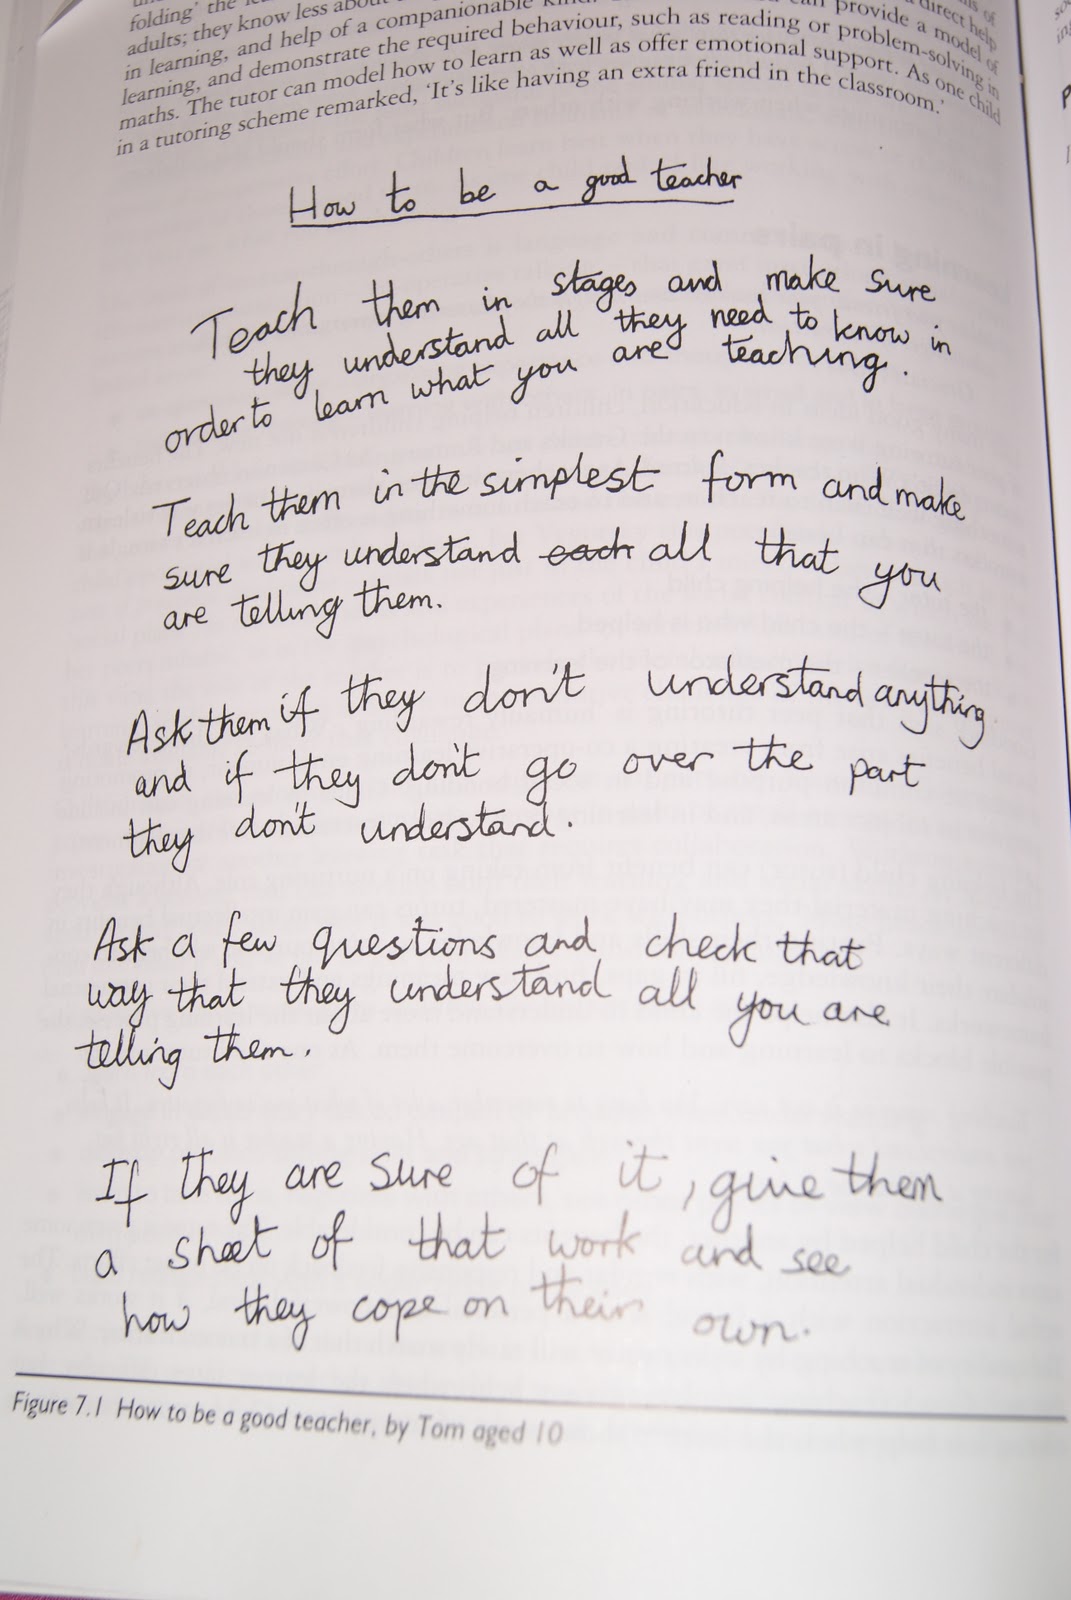 folding' the
adults; they know less about direct help
in learning, and help of a companionable can provide a model of
learning, and demonstrate the required behaviour, such as reading or problem-solving in
maths. The tutor can model how to learn as well as offer emotional support. As one child
in a tutoring scheme remarked, 'It's like having an extra friend in the classroom.'
How to be a good teacher
Teach them in stages and make sure
they understand all they need to know in
order to learn what you are teaching.
Teach them in the simplest form and make
sure they understand each all that you
are telling them.
Ask them if they don't understand anything
and if they don't go over the part
they don't understand.
Ask a few questions and check that
way that they understand all you are
telling them.
If they are sure of it, give them
a sheet of that work and see
how they cope on their own.
Figure 7.1 How to be a good teacher, by Tom aged 10